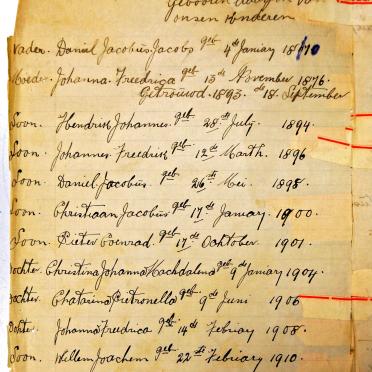 Gebooren dagen van
onsen kinderen
Vader. Daniel Jacobus Jacobs geb 4de Janiary 1870
Moeder. Johanna Freedrica geb 13de November 1876.
Getrouwd. 1893. de 18. September
Soon. Hendrik Johannes. geb 28ste July. 1894.
Soon. Johannes Freedrik geb 12de Marth. 1896
Soon. Daniel Jacobus. geb 26ste Mei. 1898.
Soon. Christiaan Jacobus geb 17de January. 1900.
Soon. Pieter Coenrad. geb 17de Ochtober. 1901.
Dochter. Christina Johanna Machdalena geb 9de Janiary 1904.
Dochter. Chatarina Pietronella geb 9de Juni 1906
Dochter. Johanna Freedrica geb 14de Febriary 1908.
Soon. Willem Joachem geb 22ste Febriary 1910.